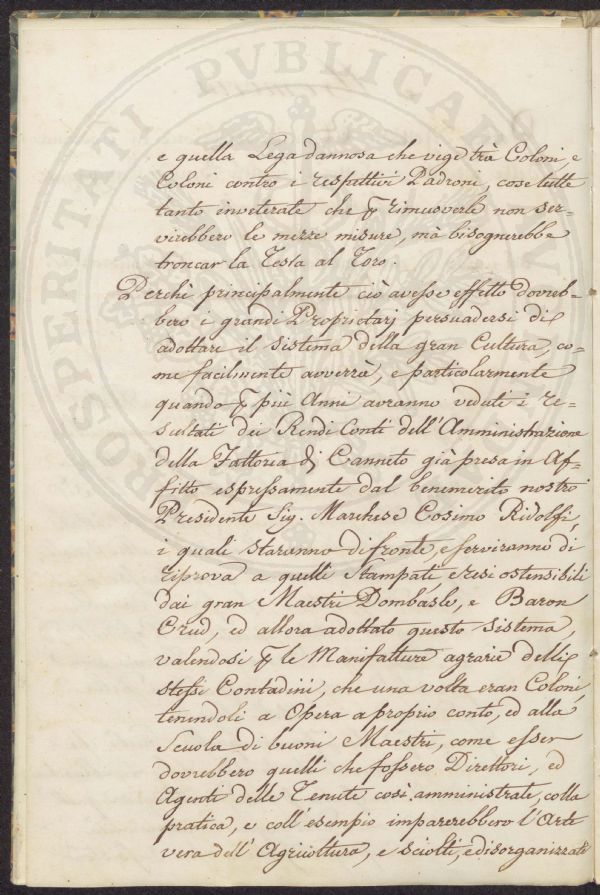 PROSPERITATI PVBLICAE
e quella Lega dannosa che vige trà Coloni, e
Coloni contro i respettivi Padroni, cose tutte
tanto inveterate che p rimuoverle non ser=
virebbero le mezze misure, mà bisognerebbe
troncar la Testa al Toro.
Perchè principalmente ciò avesse effetto dovreb=
bero i grandi Proprietarj persuadersi di
adottare il sistema della gran Cultura, co=
me facilmente avverrà, e particolarmente
quando p più Anni avranno veduti i re=
sultati dei Rendi Conti dell'Amministrazione
della Fattoria di Canneto già presa in Af=
fitto espressamente dal benemerito nostro
Presidente Sig. Marchese Cosimo Ridolfi,
i quali staranno di fronte, e serviranno di
riprova a quelli stampati e resi ostensibili
dai gran Maestri Dombasle, e Baron
Crud, ed allora adottato questo sistema,
valendosi p le Manifatture agrarie delli
stessi Contadini, che una volta eran Coloni,
tenendoli a Opera a proprio conto, ed alla
Scuola di buoni Maestri, come esser
dovrebbero quelli che fossero Direttori, ed
Agenti delle Tenute così amministrate, colla
pratica, e coll'esempio imparerebbero l'Arte
vera dell'Agricoltura, e sciolti, e disorganizzati